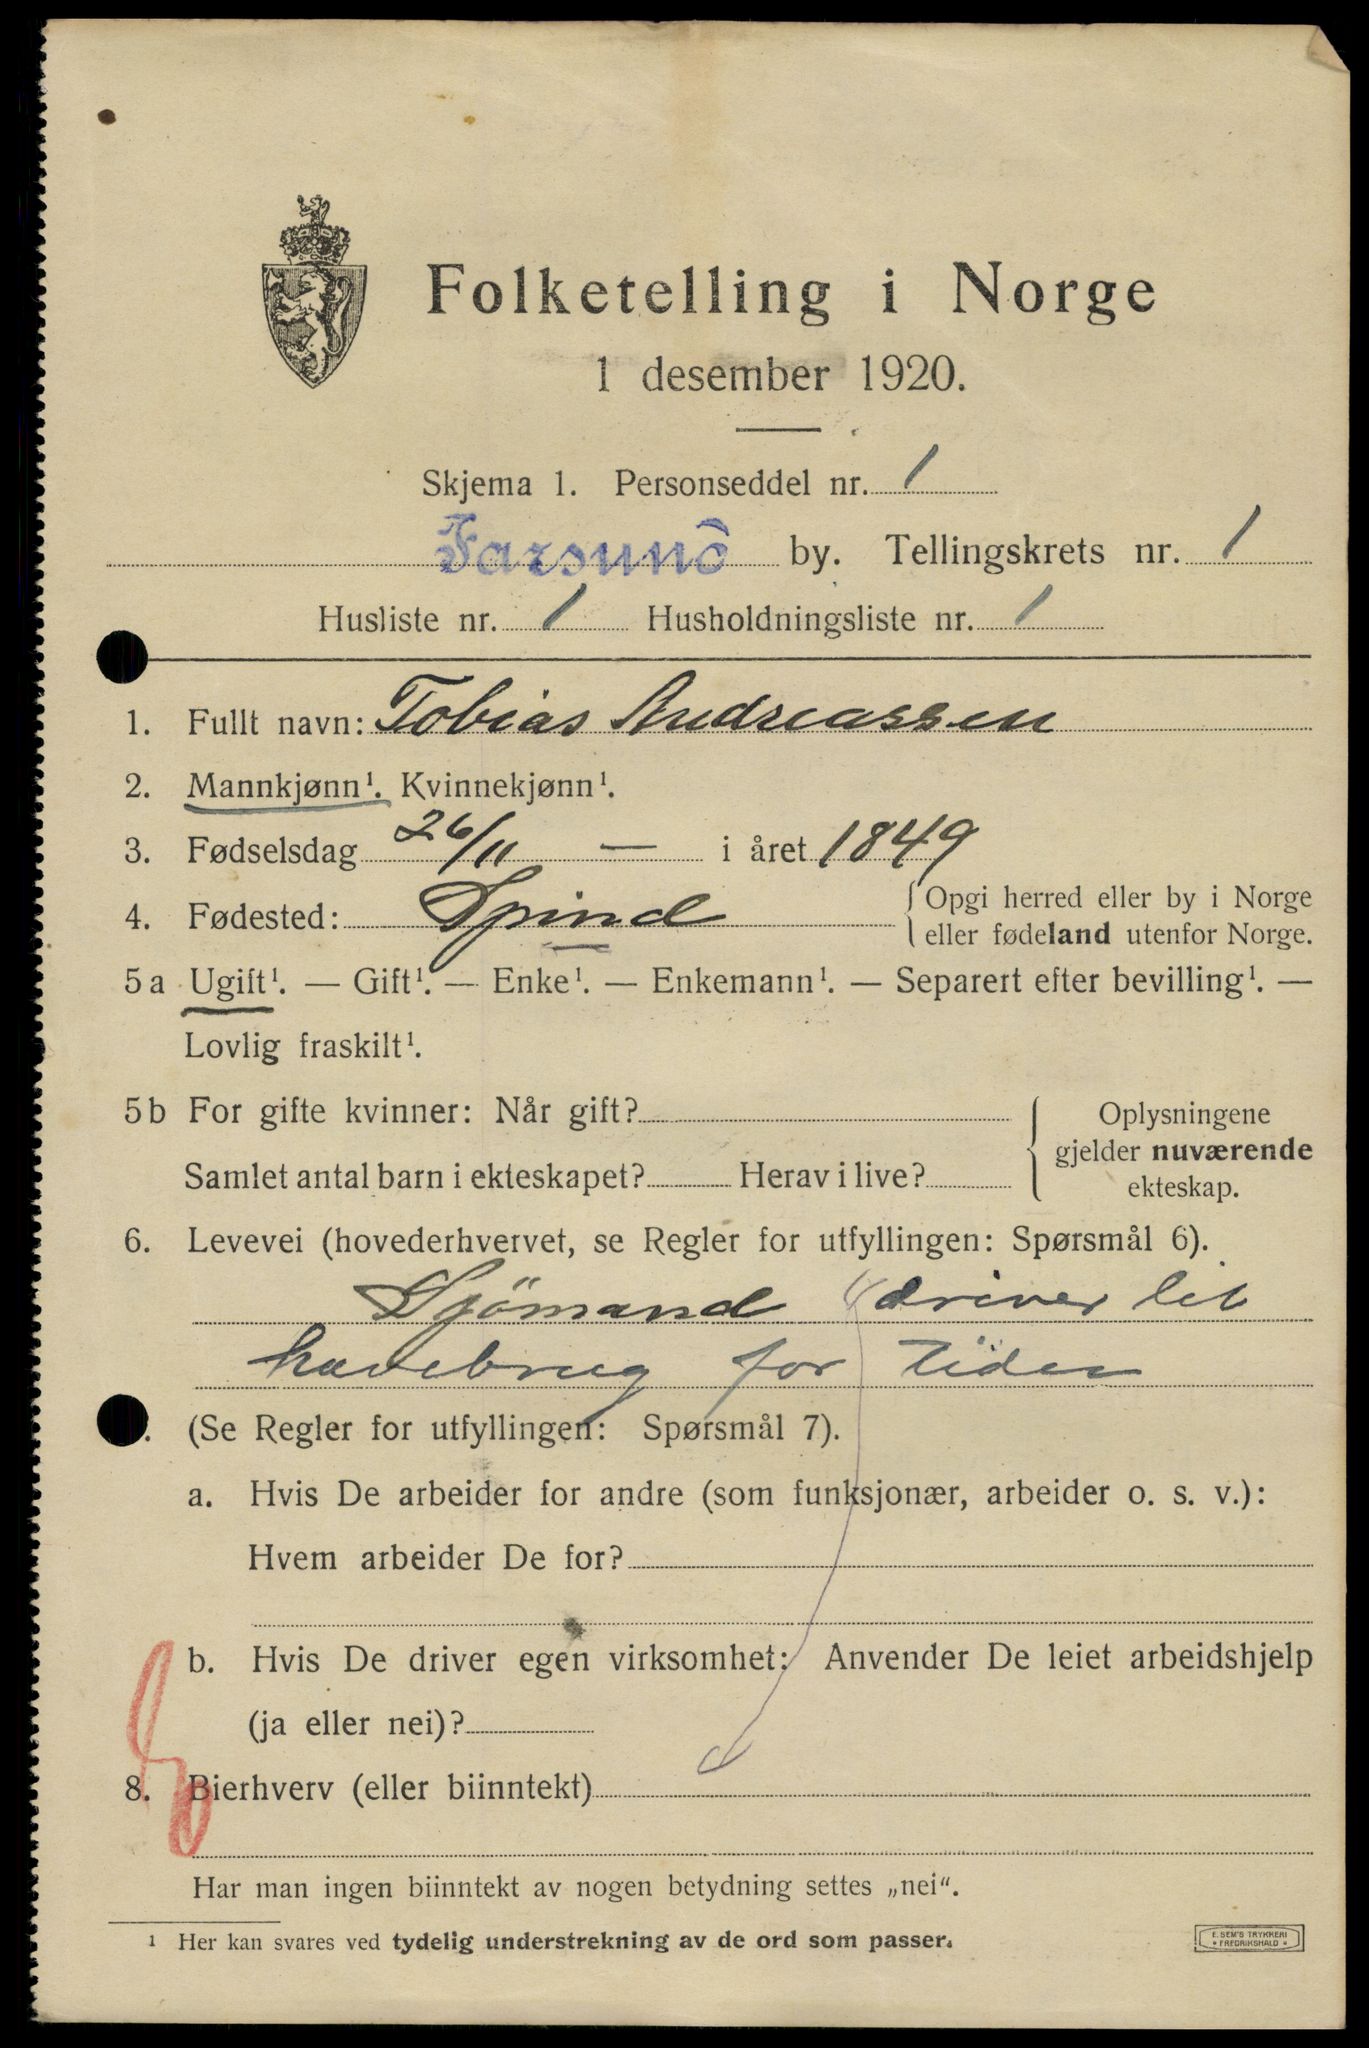 Folketelling i Norge
1 desember 1920.
Skjema 1. Personseddel nr. 1
Farsund by. Tellingskrets nr. 1
Husliste nr. 1 Husholdningsliste nr. 1
1. Fullt navn: Tobias Andreassen
2. Mannkjønn¹. Kvinnekjønn¹.
3. Fødselsdag 26/11 — i året 1849
4. Fødested: Spind { Opgi herred eller by i Norge
eller fødeland utenfor Norge.
5a Ugift¹. — Gift¹. — Enke¹. — Enkemann¹. — Separert efter bevilling¹. —
Lovlig fraskilt¹.
5b For gifte kvinner: Når gift? { Oplysningene
gjelder nuværende
Samlet antal barn i ekteskapet? Herav i live?
ekteskap.
6. Levevei (hovederhvervet, se Regler for utfyllingen: Spørsmål 6).
Sjömand driver lit
havebrug for tiden
. (Se Regler for utfyllingen: Spørsmål 7).
a. Hvis De arbeider for andre (som funksjonær, arbeider o. s. v.):
Hvem arbeider De for?
b. Hvis De driver egen virksomhet: Anvender De leiet arbeidshjelp
(ja eller nei)?
8. Bierhverv (eller biinntekt)
Har man ingen biinntekt av nogen betydning settes „nei“.
¹ Her kan svares ved tydelig understrekning av de ord som passer.
E. SEM'S TRYKKERI
• FREDRIKSHALD •